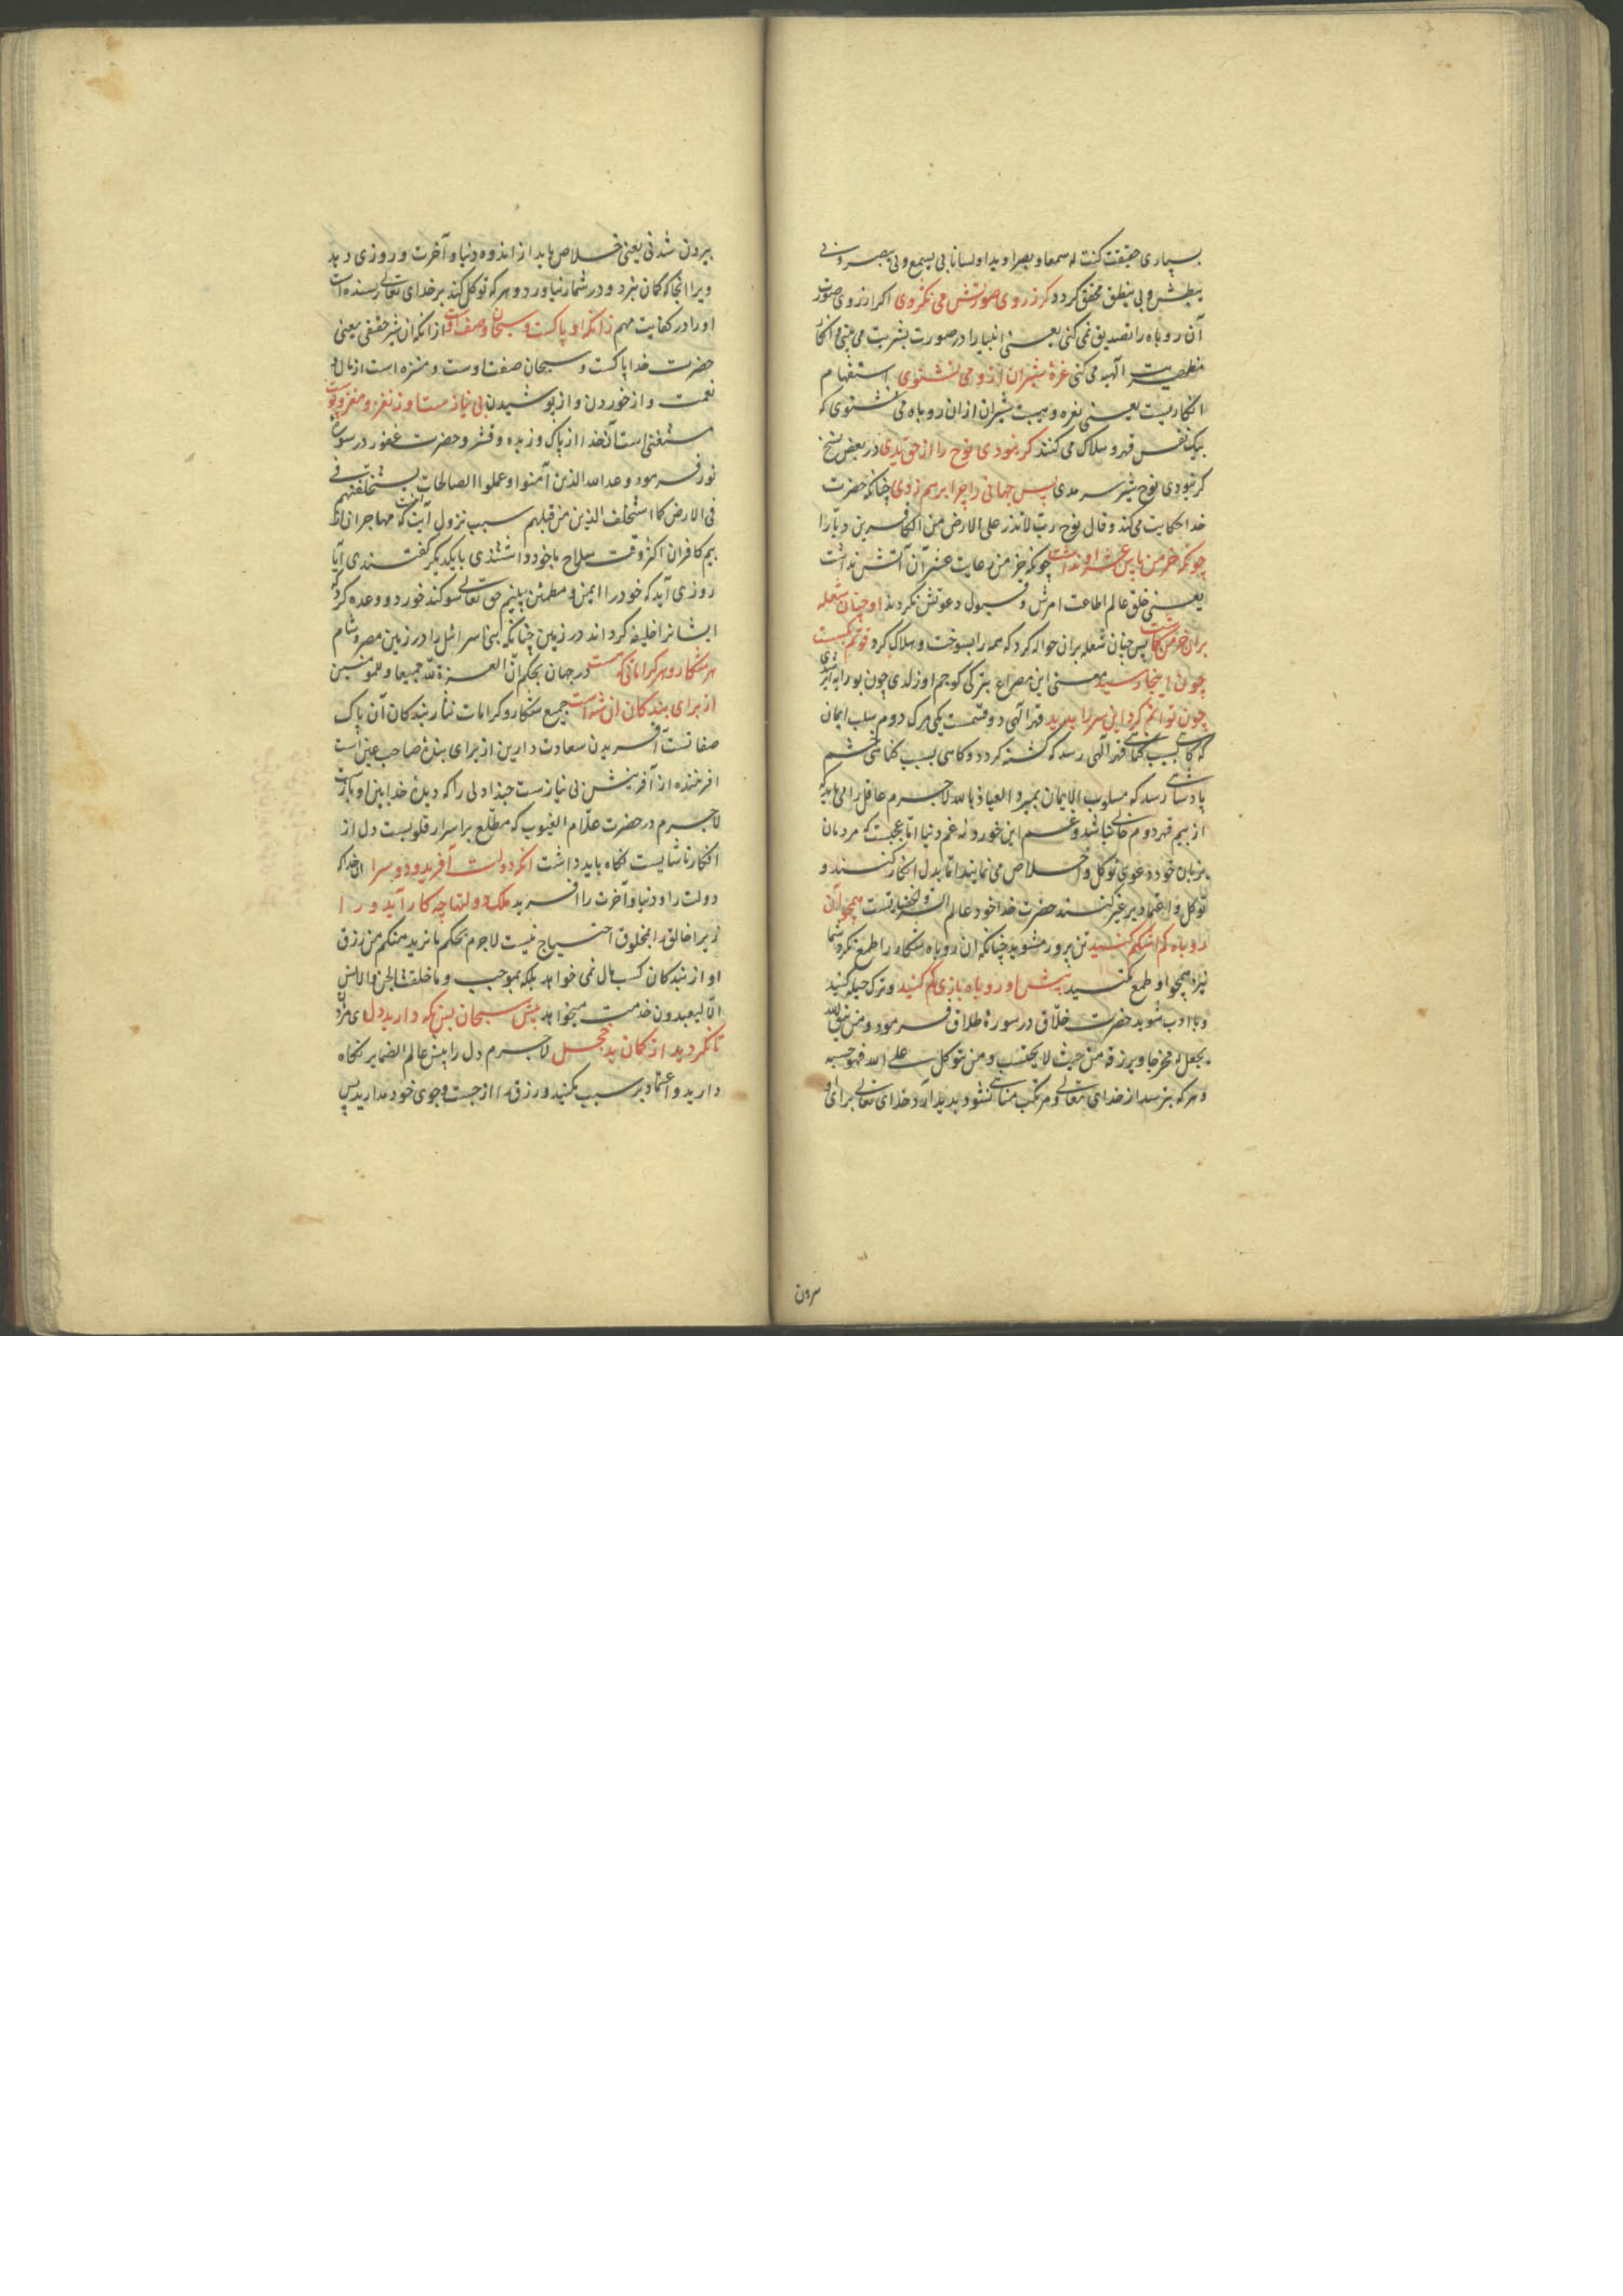 بسیاری حقیقت کنت له سمعا و بصرا و یدا و لسانا بی یسمع و بی یبصر و بی
یبطش و بی ینطق محقق کردد کر ز روی صورتش می نکروی اکر از روی صورت
آن روباه را تصدیق نمی کنی یعنی انبیا را در صورت بشریت می بینی و انکار
مظهریت آلهیه می کنی غرۀ شیران ازو می نشنوی استفهام
انکاریست یعنی نعره و هیبت شیران ازان روباه می شنوی که
بیکنفس قهر و هلاک می کنند کر نبودی نوح را از حق یدی در بعض نسخ
کر نبودی نوح شیر سرمدی پس جهانی را چرا برهم زدی چنانکه حضرت
خدا حکایت می کند و قال نوح رب لا تذر علی الارض من الکافرین دیارا
چونکه خرمن پاس عشر او نداشت چونکه خرمن رعایت عشر آن آتش نداشت
یعنی خلق عالم اطاعت امرش و قبول دعوتش نکردند او چنان شعله
بران خرمن کاشت پس چنان شعله بران حواله کرد که همه را بسوخت و هلاک کرد
چون اینجا رسید معنی این مصراع بترکی کوجم اوزلدی چون بورایه
چون توانم کرد این سر را پدید قهر آلهی دو قسمت یکی مرک دوم سلب ایمان
که کاهی بسبب کناهی قهر آلهی رسد که کشته کردد و کاهی بسبب کناهی خشم
پادشاهی رسد که مسلوب الایمان بمیرد العیاذ بالله لاجرم عاقل را می باید که
از بیم قهر دوم خالی نباشد و غم این خورد نه غم دنیا اما عجبست که مردمان
بزبان خود دعوی توکل و اخلاص می نمایند اما بدل انکار کنند و
توکل و اعتماد بر غیر کنند حضرت خدا خود عالم السر و الخفیاتست همچو آن
روباه کم اشکم کنید تن پرور مشوید چنانکه ان روباه شکار را طمع نکرد شما
نیز همچو او طمع مکنید پیش او روباه بازی کم کنید و ترک حیله کنید
و با ادب شوید حضرت خلاق در سورۀ طلاق فرمود و من یتق الله
یجعل له مخرجا و یرزقه من حیث لا یحتسب و من یتوکل علی الله فهو حسبه
و هر که بترسد از خدای تعالی و مرتکب مناهی نشود پدید آرد خدای تعالی برای او
بیرون شدنی یعنی خلاص یابد از اندوه دنیا و آخرت و روزی دهد
ویرا از انجا که کمان نبرد و در شمار نیاورد و هر که توکل کند بر خدای تعالی بسنده است
او را در کفایت مهم زانکه او پاکست و سبحان وصف اوست از انکه ان شیر حقیقی یعنی
حضرت خدا پاکست و سبحان صفت اوست و منزه است از مال و
نعمت و از خوردن و از پوشیدن بی نیازست او ز نغز و مغز و پوست
مستغنی است آن خدا از پاک و زبده و قشر و حضرت غفور در سورۀ
نور فرمود وعد الله الذین آمنوا و عملوا الصالحات لیستخلفنهم
فی الارض کما استخلف الذین من قبلهم سبب نزول آیت آنست که مهاجران از
بیم کافران اکثر وقت سلاح با خود داشتندی با یکدیکر کفتندی آیا
روزی آید که خود را ایمن و مطمئن بینیم حق تعالی سوکند خورد و وعده کرد که
ایشانرا خلیفه کرداند در زمین چنانکه بنی اسرائیل را در زمین مصر و شام
هر شکار و هر کراماتی که هست در جهان بحکم ان العزة لله جمیعا و للمومنین
از برای بندکان ان شه است جمیع شکار و کرامات نثار بندکان آن پاک
صفاتست آفریدن سعادت دارین از برای بندۀ صاحب عین است
افریننده از آفرینش بی نیازست حبذا دلی را که دیدۀ خدابین او بازست
لاجرم در حضرت علام الغیوب که مطلع بر اسرار قلوبست دل از
افکار ناشایست نکاه باید داشت انکه دولت آفرید و دو سرا ان خدا که
دولت را و دنیا و آخرت را افرید ملک دولتها چه کار آید ورا
زیرا خالق را بمخلوق احتیاج نیست لاجرم بحکم ما نرید منکم من رزق
او از بندکان کسب مال نمی خواهد بلکه بموجب و ما خلقت الجن و الانس
الا لیعبدون خدمت میخواهد پیش سبحان پس نکه دارید دل
تا نکردید از کمان بد خجل لاجرم دل را پیش عالم الضمایر نکاه
دارید و اعتماد بر سبب مکنید و رزق را از جست و جوی خود مدارید پس